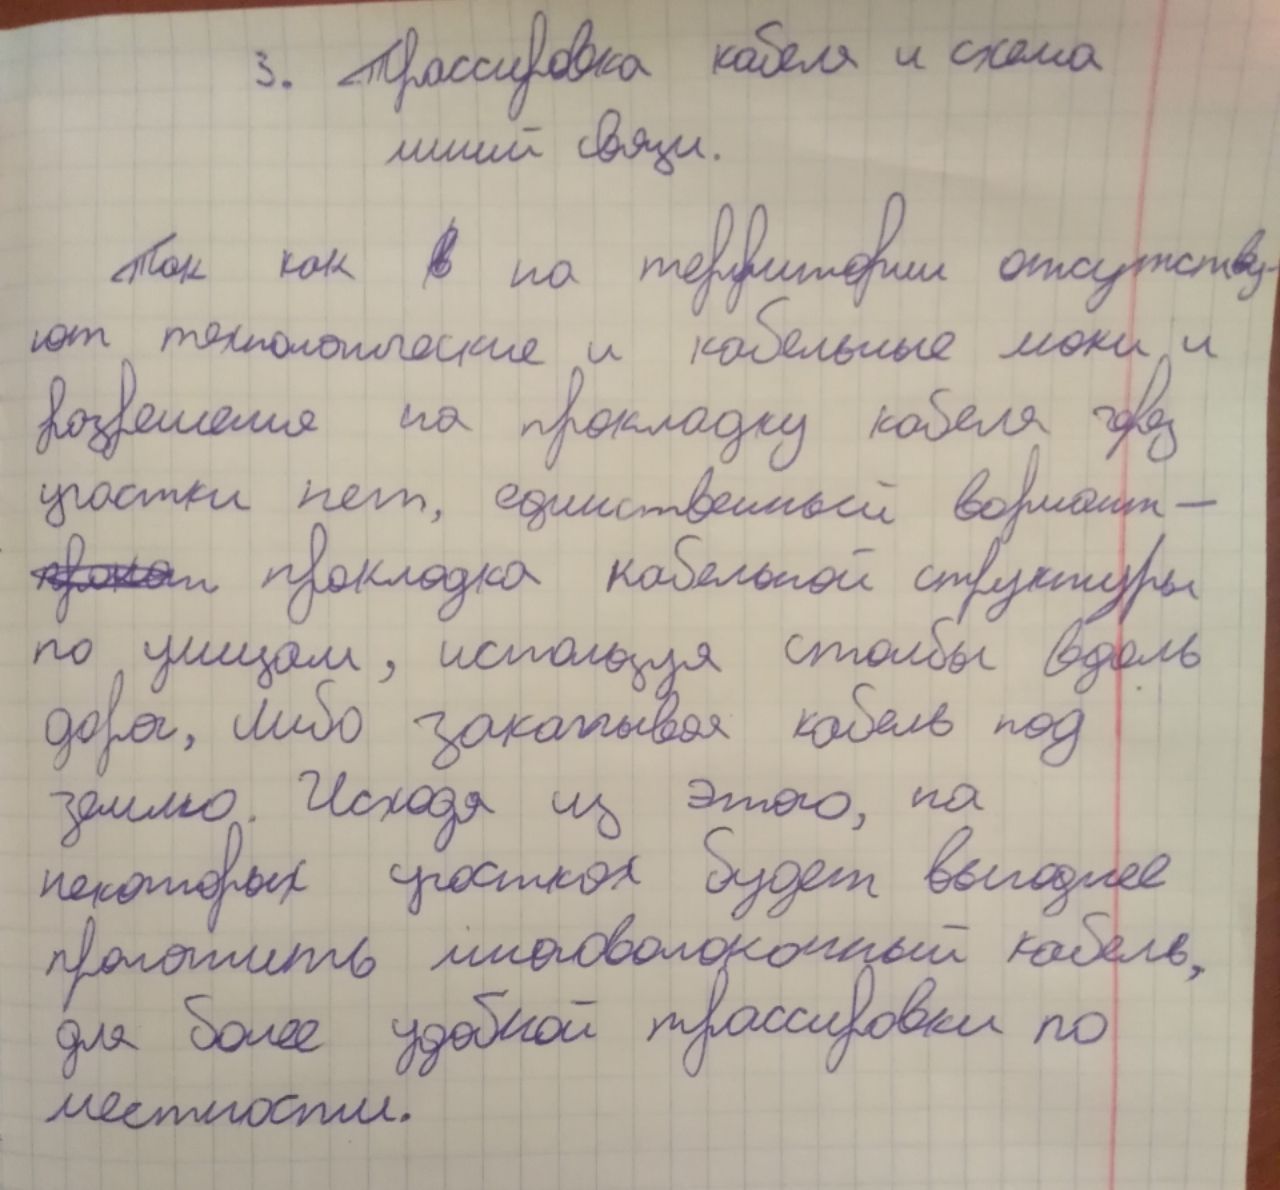 3. Трассировка кабеля и схема
линий связи.
Так как на территории отсутству-
ют технологические и кабельные люки и
разрешения на прокладку кабеля через
участки нет, единственный вариант –
прокладка кабельной структуры
по улицам, используя столбы вдоль
дорог, либо закапывая кабель под
землю. Исходя из этого, на
некоторых участках будет выгоднее
проложить многоволоконный кабель,
для более удобной трассировки по
местности.